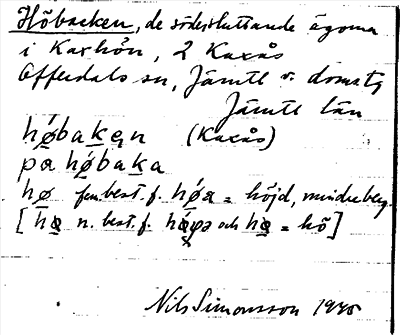 Höbacken, de södersluttande ägorna
i Kaxhön, 2 Kaxås
Offerdals sn, Jämtl v. domsg
Jämtl län
hǿbakęn (Kaxås)
pa hǿbaka
hø fem. best. f. hǿa = höjd, mindre berg
[hø n. best. f. och hø = hö]
Nils Simonsson